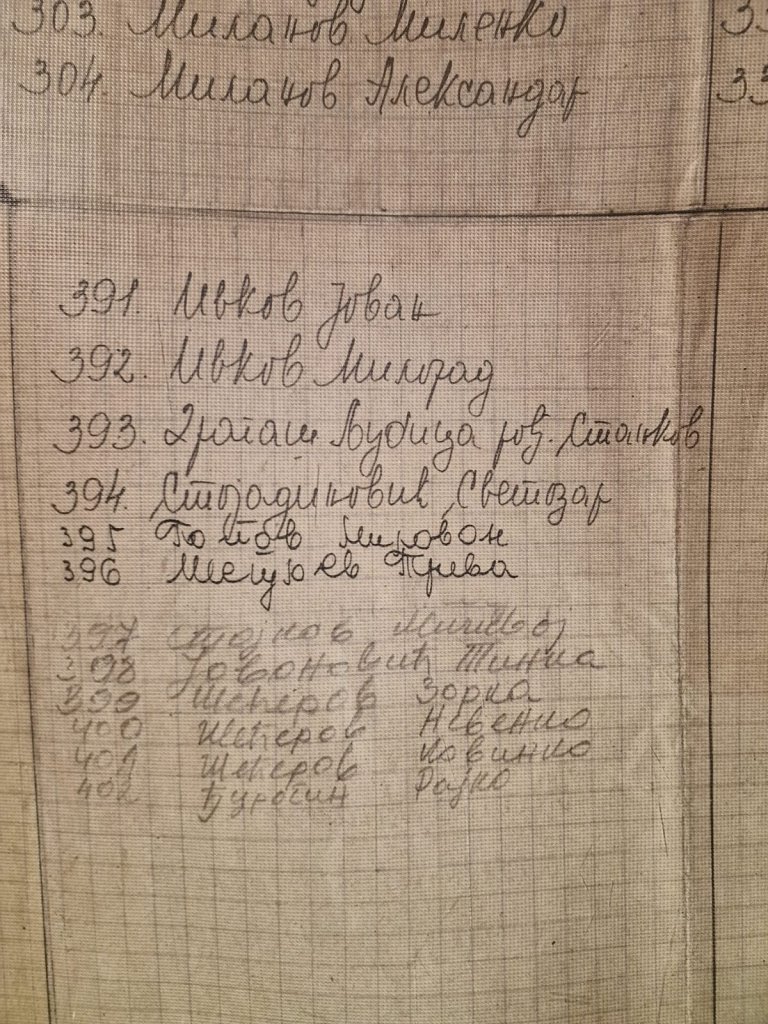 303. Миланов Миленко
304. Миланов Александар
33
391. Ивков Јован
392. Ивков Милорад
393. Драгаш Љубица рођ. Станков
394. Стојадиновић Светозар
395 Готов
396 Прева
397 Стојков Миливој
398 Јовановић Тинка
399 Шеперов Зорка
400 Шеперов Невенко
401 Шеперов Ковинко
402 Ђуросин Рајко